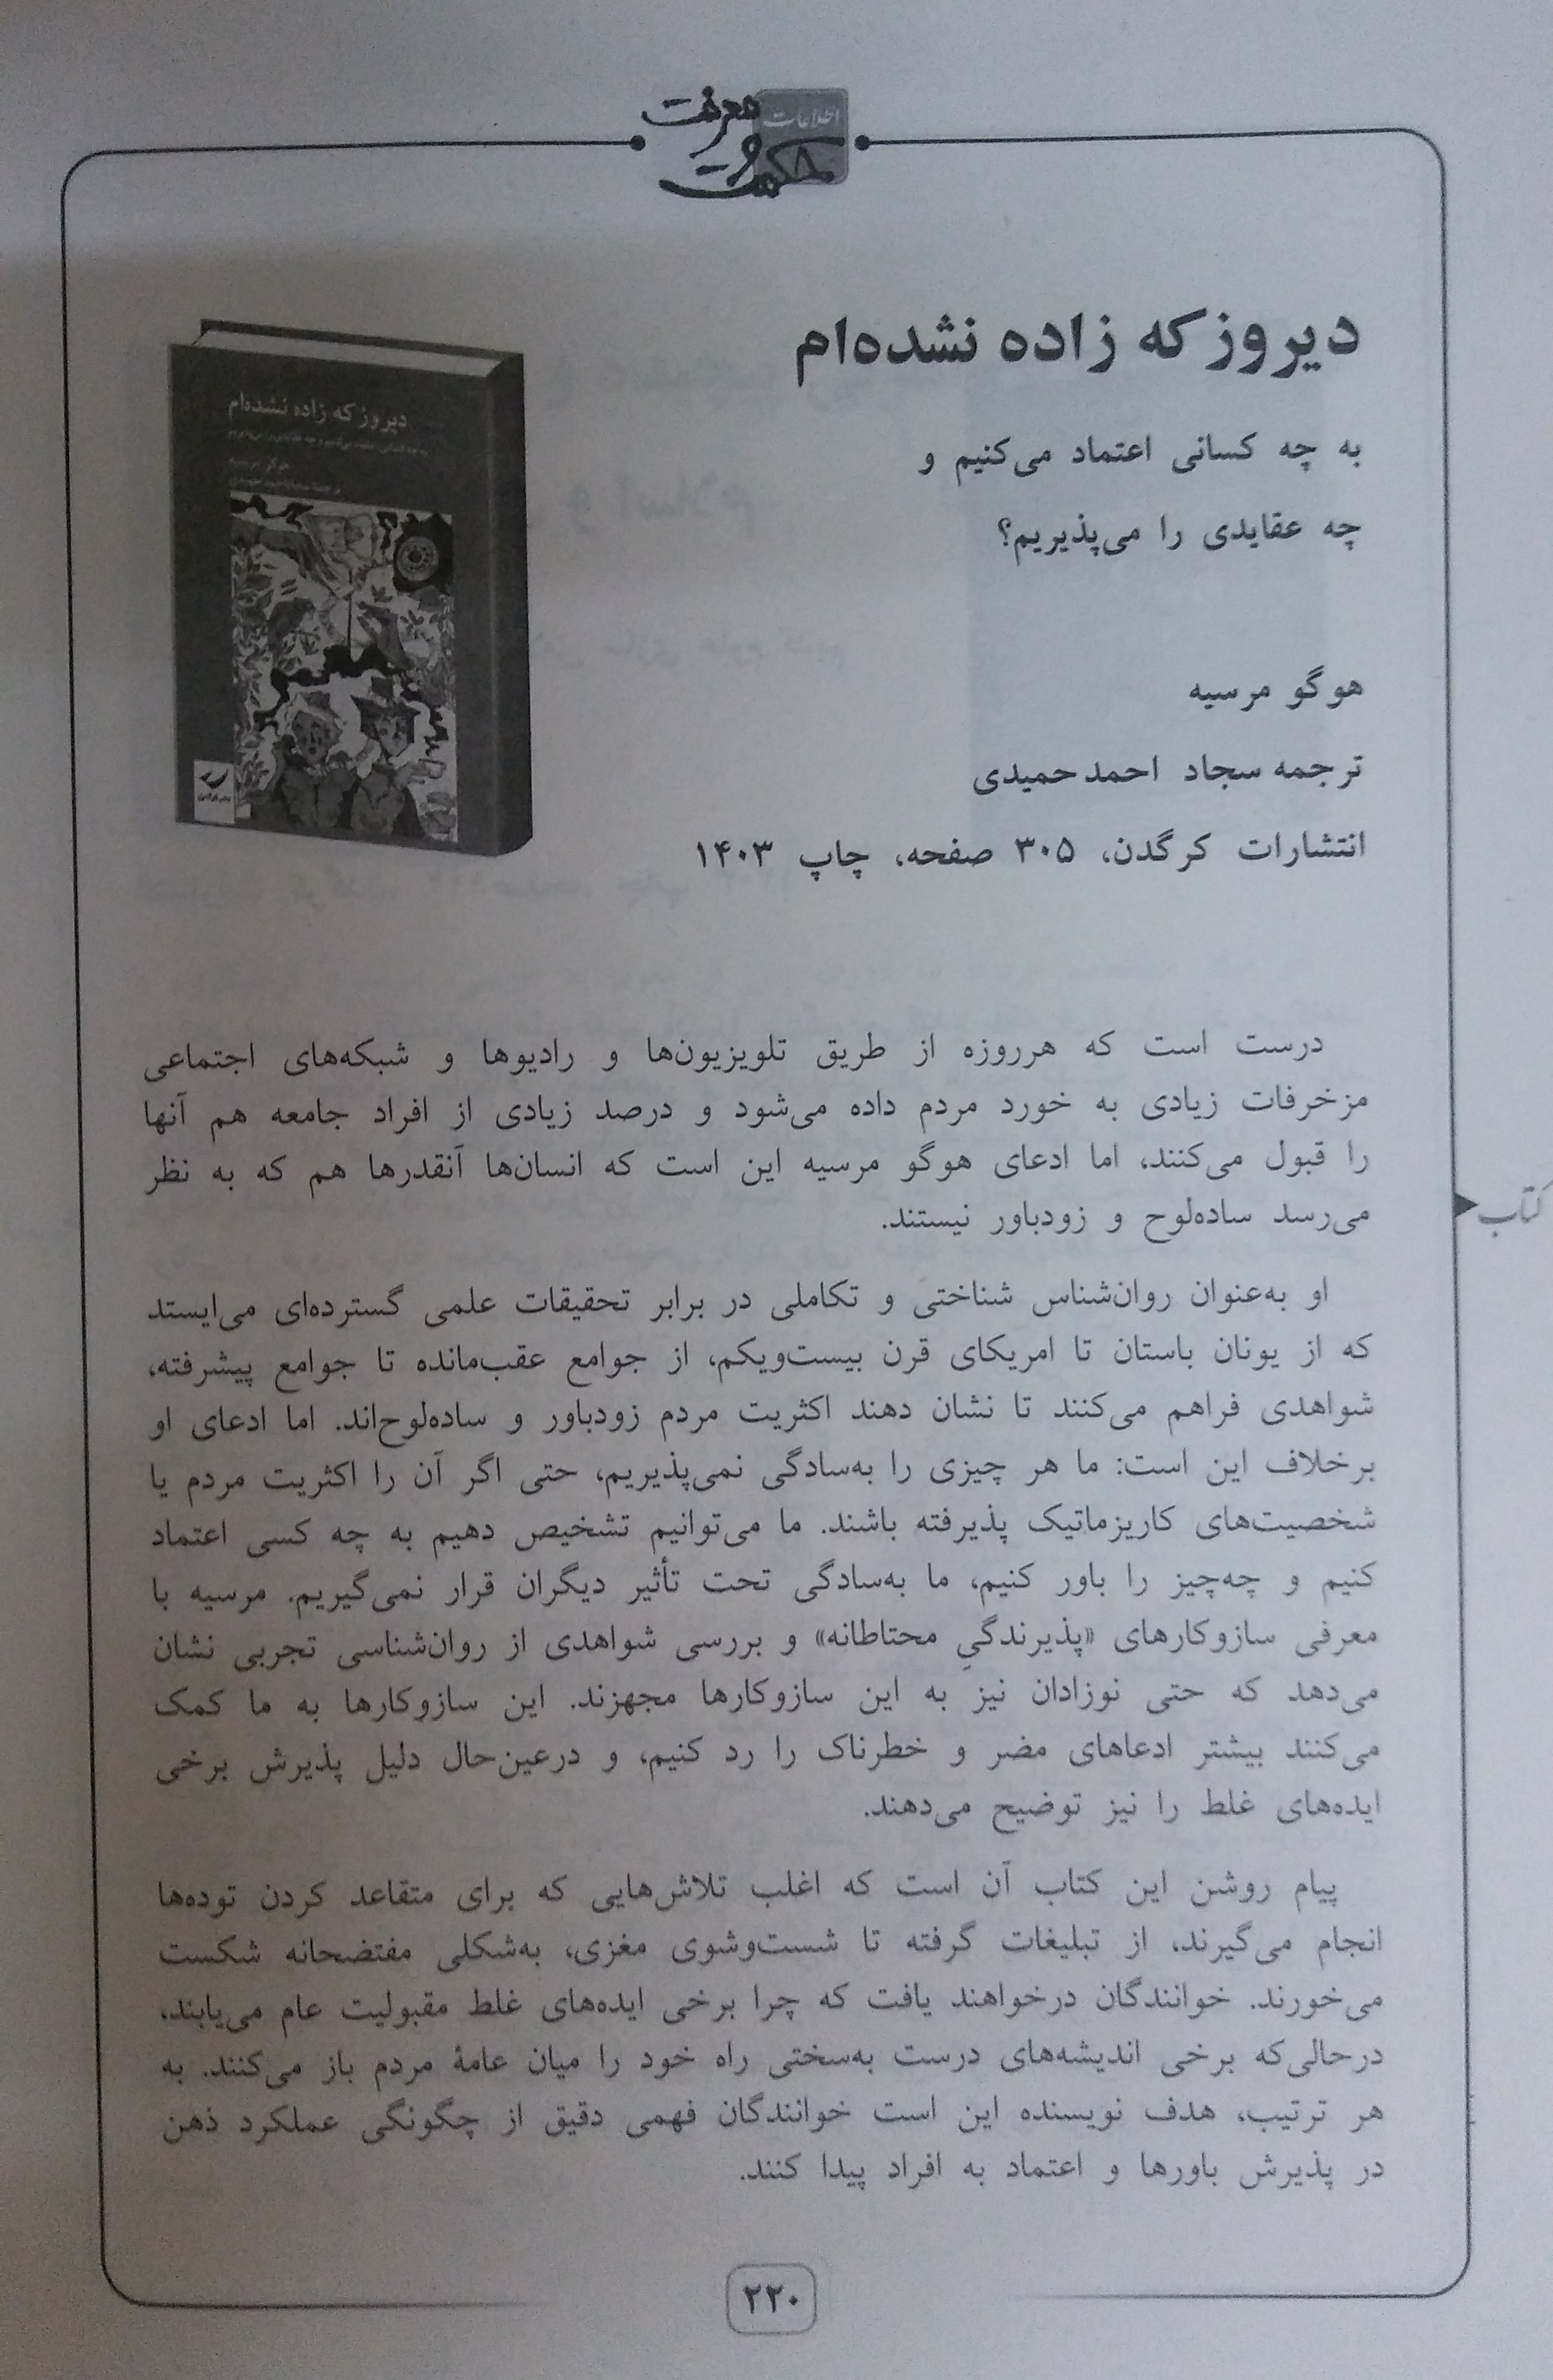 اطلاعات
حکمت و معرفت
دیروز که زاده نشده‌ام
به چه کسانی اعتماد می‌کنیم و
چه عقایدی را می‌پذیریم؟
هوگو مرسیه
ترجمه سجاد احمدحمیدی
انتشارات کرگدن، ۳۰۵ صفحه، چاپ ۱۴۰۳
دیروز که زاده نشده‌ام
درست است که هرروزه از طریق تلویزیون‌ها و رادیوها و شبکه‌های اجتماعی
مزخرفات زیادی به خورد مردم داده می‌شود و درصد زیادی از افراد جامعه هم آنها
را قبول می‌کنند، اما ادعای هوگو مرسیه این است که انسان‌ها آنقدرها هم که به نظر
می‌رسد ساده‌لوح و زودباور نیستند.
کتاب
او به‌عنوان روان‌شناس شناختی و تکاملی در برابر تحقیقات علمی گسترده‌ای می‌ایستد
که از یونان باستان تا امریکای قرن بیست‌ویکم، از جوامع عقب‌مانده تا جوامع پیشرفته،
شواهدی فراهم می‌کنند تا نشان دهند اکثریت مردم زودباور و ساده‌لوح‌اند. اما ادعای او
برخلاف این است: ما هر چیزی را به‌سادگی نمی‌پذیریم، حتی اگر آن را اکثریت مردم یا
شخصیت‌های کاریزماتیک پذیرفته باشند. ما می‌توانیم تشخیص دهیم به چه کسی اعتماد
کنیم و چه‌چیز را باور کنیم، ما به‌سادگی تحت تأثیر دیگران قرار نمی‌گیریم. مرسیه با
معرفی سازوکارهای «پذیرندگیِ محتاطانه» و بررسی شواهدی از روان‌شناسی تجربی نشان
می‌دهد که حتی نوزادان نیز به این سازوکارها مجهزند. این سازوکارها به ما کمک
می‌کنند بیشتر ادعاهای مضر و خطرناک را رد کنیم، و درعین‌حال دلیل پذیرش برخی
ایده‌های غلط را نیز توضیح می‌دهند.
پیام روشن این کتاب آن است که اغلب تلاش‌هایی که برای متقاعد کردن توده‌ها
انجام می‌گیرند، از تبلیغات گرفته تا شست‌وشوی مغزی، به‌شکلی مفتضحانه شکست
می‌خورند. خوانندگان درخواهند یافت که چرا برخی ایده‌های غلط مقبولیت عام می‌یابند،
درحالی‌که برخی اندیشه‌های درست به‌سختی راه خود را میان عامهٔ مردم باز می‌کنند. به
هر ترتیب، هدف نویسنده این است خوانندگان فهمی دقیق از چگونگی عملکرد ذهن
در پذیرش باورها و اعتماد به افراد پیدا کنند.
۲۲۰